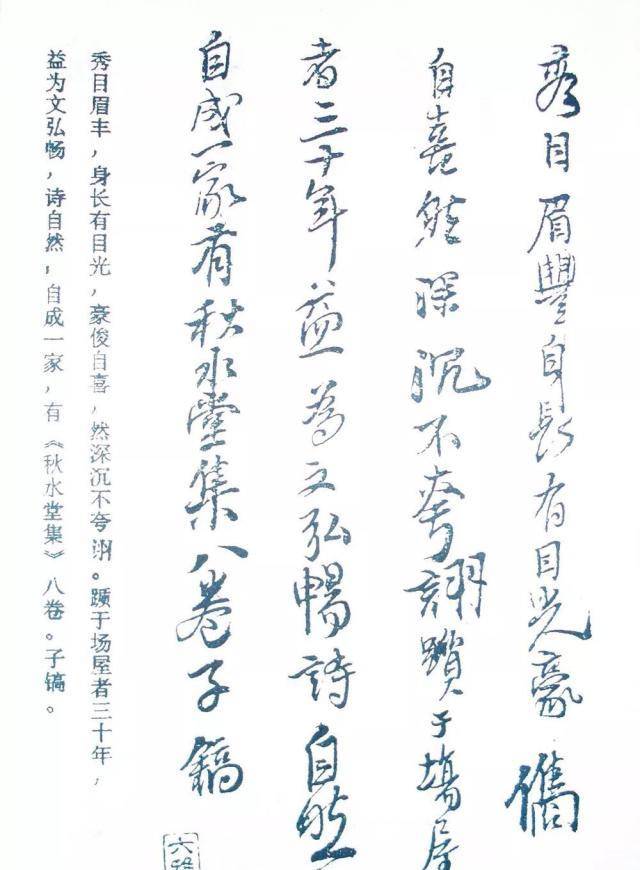 秀目眉豐身長有目光豪儁
自喜然深沉不夸詡躓于場屋
者三十年益為文弘暢詩自然
自成一家有秋水堂集八卷子鎬
秀目眉丰，身长有目光，豪俊自喜，然深沉不夸诩。踬于场屋者三十年，
益为文弘畅，诗自然，自成一家，有《秋水堂集》八卷。子镐。